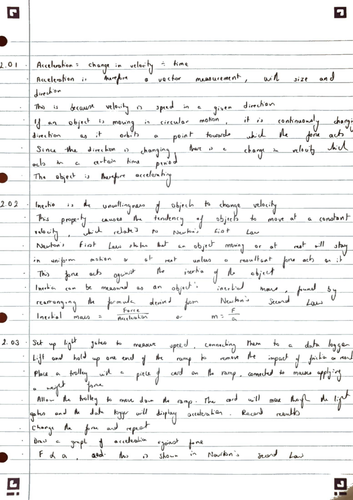 2.01 Acceleration = change in velocity ÷ time
Acceleration is therefore a vector measurement, with size and
direction
This is because velocity is speed in a given direction
If an object is moving in circular motion, it is continuously changing
direction as it orbits a point towards which the force acts
Since the direction is changing, there is a change in velocity which
acts in a certain time period
The object is therefore accelerating
2.02 Inertia is the unwillingness of objects to change velocity
This property causes the tendency of objects to move at a constant
velocity, which relates to Newton's First Law
Newton's First Law states that an object moving or at rest will stay
in uniform motion or at rest unless a resultant force acts on it
This force acts against the inertia of the object
Inertia can be measured as an object's inertial mass, found by
rearranging the formula derived from Newton's Second Law
Inertial mass = Force/Acceleration or m = F/a
2.03 Set up light gates to measure speed, connecting them to a data logger
Lift and hold up one end of the ramp to remove the impact of friction
Place a trolley with a piece of card on the ramp, connected to masses applying
a weight force
Allow the trolley to move down the ramp. The card will move through the light
gates and the data logger will display acceleration. Record results
Change the force and repeat
Draw a graph of acceleration against force
F α a, and this is shown in Newton's Second Law